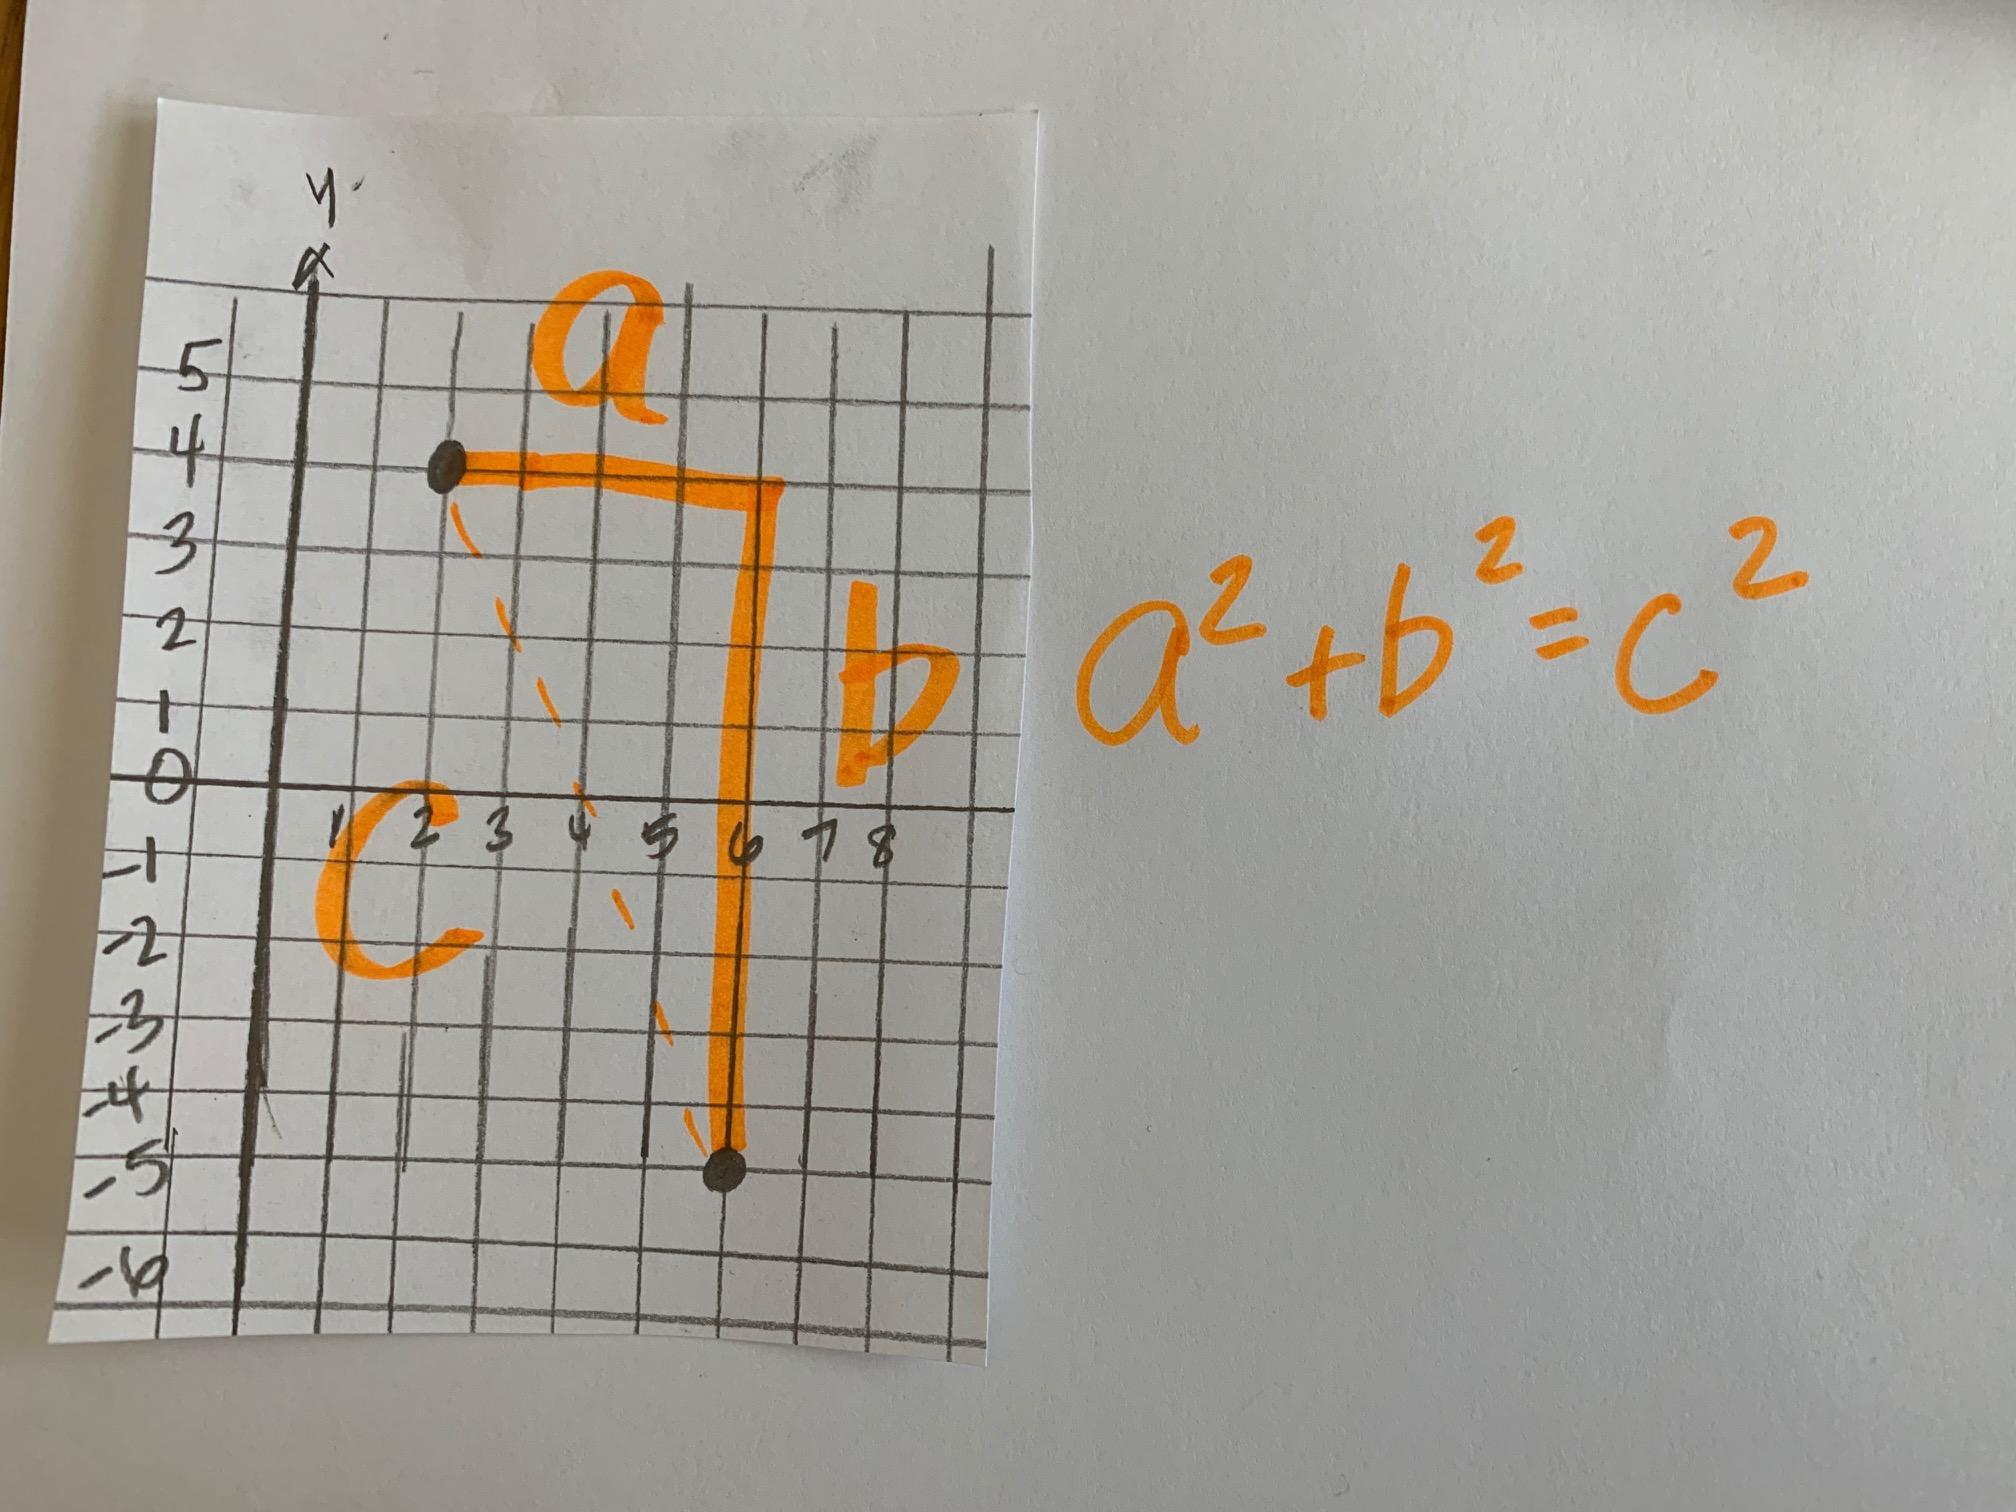 y
a
5
4
3
2
b
a² + b² = c²
1
0
1 2 3 4 5 6 7 8
C
-1
-2
-3
-4
-5
-6